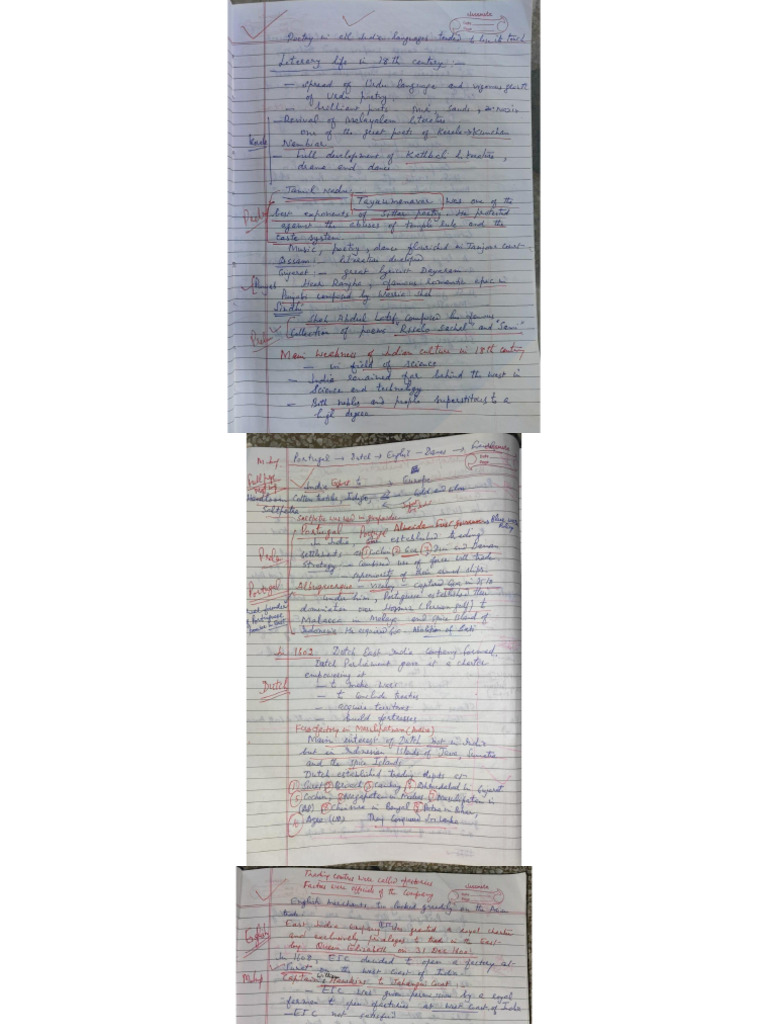 Poetry in all Indian languages tended to lose its touch
Literary life in 18th century :-
- Spread of Urdu language and vigorous growth
of Urdu poetry.
- brilliant poets Mir, Sauda, Nazir
- Revival of Malayalam literature
one of the great poets of Kerala → Kunchan
Kerala
Nambiar
- Full development of Kathkali literature,
drama and dance
- Tamil
Prelims
Tayaumanavar was one of the
best exponents of Sittar poetry. He protested
against the abuses of temple rule and the
caste system
Music, poetry, dance flourished in Tanjore court
Assam :- literature developed
Gujarat :- great lyricist Dayaram
Punjab
Heer Ranjha, famous romantic epic in
Punjabi composed by Warris Shah
Sindhi
Shah Abdul Latif composed his famous
collection of poems Risalo Sachal and "Sami"
Main Weakness of Indian culture in 18th century
- in field of science
- India remained far behind the West in
Science and technology
- Both nobles and people superstitious to a
high degree
Portugal → Dutch → English → Danes →
India → Europe
Cotton textiles, Indigo, Gold and silver
Saltpetre
Saltpetre was used in
Portugal Almeida First governor Blue water
Policy
In India, established trading
settlements at ① Cochin ② Goa ③ Diu and Daman
Strategy - Combined use of force with trade
Superiority of their armed ships.
Portugal
Albuquerque - Viceroy - captured Goa in 1510
Under him, Portuguese established their
domination over Hormuz (Persian gulf) to
Malacca in Malaya and Spice Island of
Indonesia. He is known for Abolition of Sati
In 1602 Dutch East India Company formed.
Dutch Parliament gave it a charter
empowering it
- to make war
- to conclude treaties
- acquire territories
- build fortresses
Dutch
First factory in Masulipatnam (Andhra)
Main interest of Dutch not in India
but in Indonesian Islands of Java, Sumatra
and the Spice Islands
Dutch established trading depots at
① Surat ② Broach ③ Cambay ④ Ahmedabad in Gujarat
⑤ Cochin ⑥ Nagapatam in Madras ⑦ Masulipatam in
(AP) ⑧ Chinsura in Bengal ⑨ Patna in Bihar,
Agra (UP) They conquered Sri Lanka
Trading centres were called factories
Factors were officials of the Company
English merchants too looked greedily on the Asian
trade
English
East India Company (EIC) was granted a royal charter
and exclusively privileges to trade in the East
by Queen Elizabeth on 31 Dec 1600
In 1608, EIC decided to open a factory at
Surat on the west coast of India
Captain William Hawkins to Jahangir Court
- EIC was given permission by a royal
farman to open factories at west coast of India
- EIC not satisfied